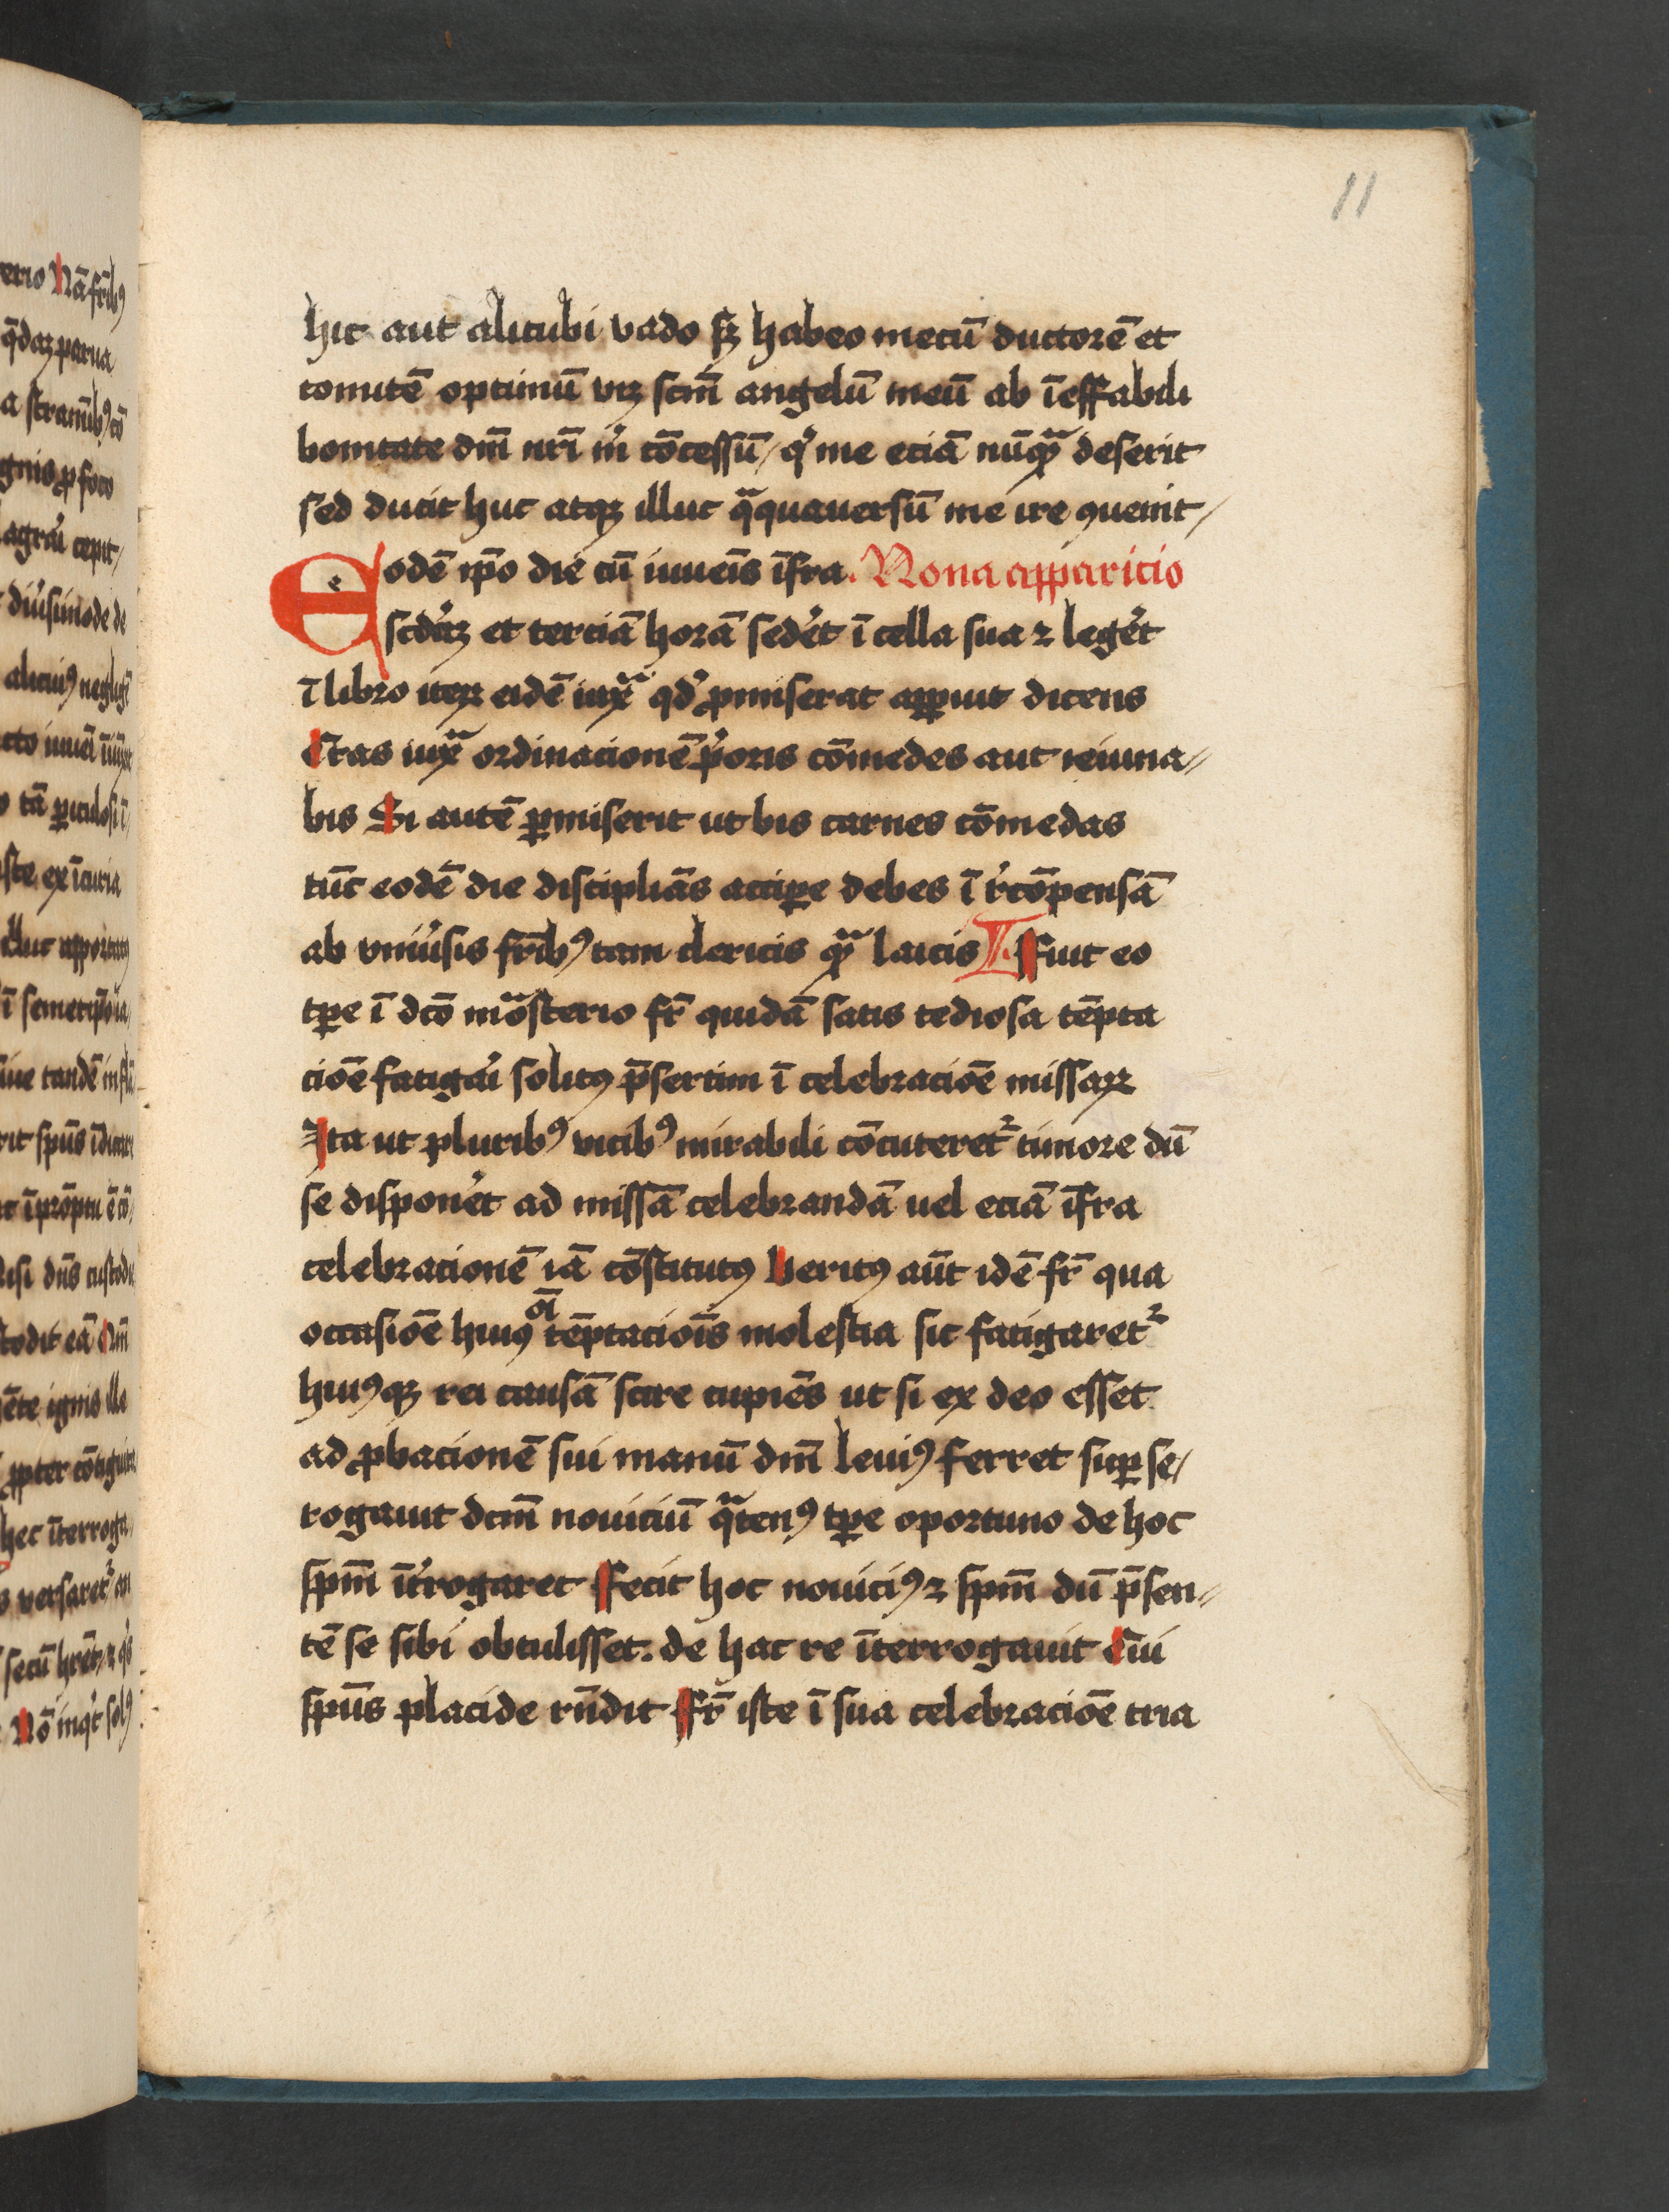 11
hic aut alicubi vado sꝫ habeo mecū ductorē et
comitē optimū vꝫ scm̄ angelū meū ab īeffabili
bonitate dm̄ nrī m̓ cōcessū / q̓ me eciā nūqᷓꝫ deserit
sed ducit huc atqꝫ illuc qᷓquauersū me ire ꝯuenit /
Eodē ip̄o die cū iuueīs īfra. Nona apparicio
scd̓aꝫ et terciā horā sed̓et ī cella sua ⁊ leg̓et
ī libro iteꝝ eidē iuxᷓ qd̓ ꝓmiserat apparuit dicens
Cras iuxᷓ ordinacionē p̓oris cōmedes aut ieiuna⸗
bis Si autē ꝑmiserit ut bis carnes cōmedas
tūc eodē die disciplīas acciꝑe debes ī r̓cōpensā
ab vniu̓sis frīb⁹ tam clericis qᷓꝫ laicis Fuit eo
tꝑe ī dc̄o mōasterio fr̄ quidā satis tediosa tēpta
cioē fatigai̓ solitꝰ p̄sertim ī celebracioē missaꝝ
Ita ut pluribꝰ vicibꝰ mirabili cōcuteret᷑ timore dū
se dispon̓et ad missā celebrandā uel eciā īfra
celebracionē iā cōstitutꝰ Veritꝰ aūt idē fr̄ qua
occasioē huiꝰ oī tēptacioīs molestia sic fatigaret᷑
huiꝰqꝫ rei causā scire cupiēs ut si ex deo esset
ad ꝓbacionē sui manū dm̄ leuiꝰ ferret suꝑ se /
rogauit dcm̄ nouiciū qᷓtenꝰ tꝑe oportuno de hoc
spm̄ īt̓rogaret Fecit hoc nouiciꝰ ⁊ spm̄ dū p̄sen⸗
tē se sibi obtulisset. de hac re īterrogauit Cui
spūs placide rn̄dit Fr̄ iste ī sua celebracioē tria